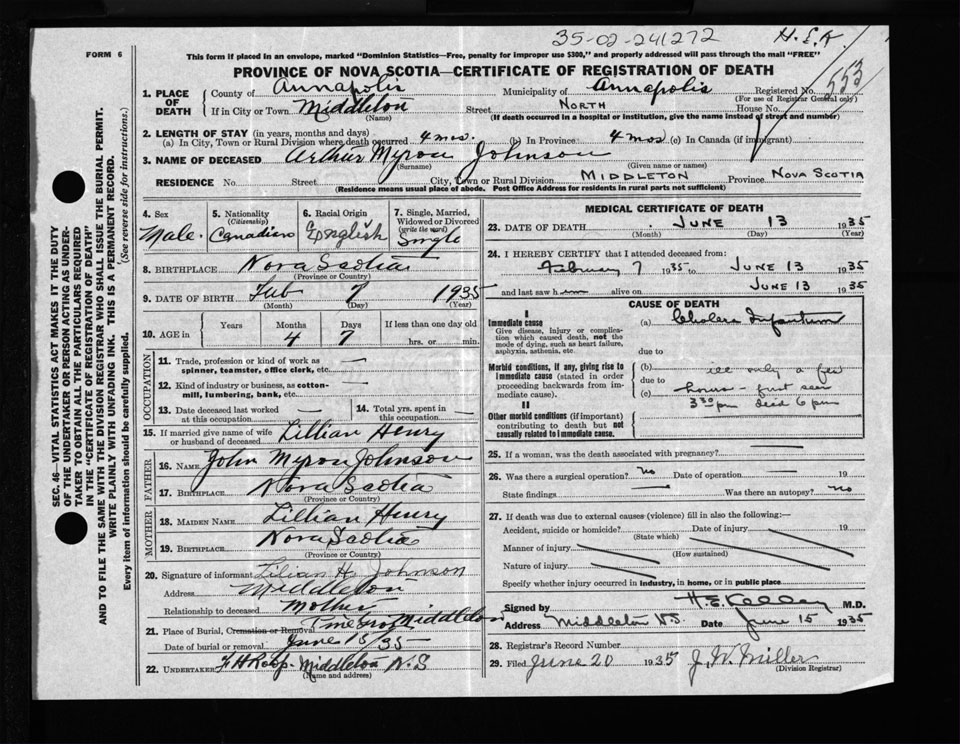 35-02-241272
H.E.K.
FORM 6
This form if placed in an envelope, marked "Dominion Statistics—Free, penalty for improper use $300," and properly addressed will pass through the mail "FREE"
PROVINCE OF NOVA SCOTIA—CERTIFICATE OF REGISTRATION OF DEATH
553
1. PLACE OF DEATH County of Annapolis Municipality of Annapolis Registered No.
(For use of Registrar General only)
If in City or Town Middleton Street North House No.
(Name) (If death occurred in a hospital or institution, give the name instead of street and number)
2. LENGTH OF STAY (in years, months and days)
(a) In City, Town or Rural Division where death occurred 4 mos. (b) In Province 4 mos (c) In Canada (if immigrant)
3. NAME OF DECEASED Arthur Myron Johnson
(Surname) (Given name or names)
RESIDENCE No. Street City, Town or Rural Division MIDDLETON Province NOVA SCOTIA
(Residence means usual place of abode. Post Office Address for residents in rural parts not sufficient)
4. Sex Male.
5. Nationality (Citizenship) Canadian
6. Racial Origin English
7. Single, Married, Widowed or Divorced (write the word) Single
8. BIRTHPLACE Nova Scotia
(Province or Country)
9. DATE OF BIRTH Feb 7 1935
(Month) (Day) (Year)
10. AGE in Years Months Days If less than one day old
4 7 hrs. or min.
OCCUPATION
11. Trade, profession or kind of work as spinner, teamster, office clerk, etc. —
12. Kind of industry or business, as cotton-mill, lumbering, bank, etc. —
13. Date deceased last worked at this occupation —
14. Total yrs. spent in this occupation —
15. If married give name of wife or husband of deceased Lillian Henry
FATHER
16. NAME John Myron Johnson
17. BIRTHPLACE Nova Scotia
(Province or Country)
MOTHER
18. MAIDEN NAME Lillian Henry
19. BIRTHPLACE Nova Scotia
(Province or Country)
20. Signature of informant Lilian H. Johnson
Address Middleton
Relationship to deceased Mother
21. Place of Burial, Cremation or Removal Pine Grove Middleton
Date of burial or removal June 15/35
22. UNDERTAKER Middleton N.S
(Name and address)
MEDICAL CERTIFICATE OF DEATH
23. DATE OF DEATH JUNE 13 1935
(Month) (Day) (Year)
24. I HEREBY CERTIFY that I attended deceased from:
February 7 1935 to JUNE 13 1935
and last saw him alive on JUNE 13 1935
CAUSE OF DEATH
I
Immediate cause (a) Cholera Infantum
Give disease, injury or complication which caused death, not the mode of dying, such as heart failure, asphyxia, asthenia, etc.
due to
Morbid conditions, if any, giving rise to immediate cause (stated in order proceeding backwards from immediate cause).
(b) ill only a few
due to
(c) hours - first seen
3 30 pm died 6 pm
II
Other morbid conditions (if important) contributing to death but not causally related to immediate cause.
25. If a woman, was the death associated with pregnancy? —
26. Was there a surgical operation? no Date of operation — 19
State findings — Was there an autopsy? no
27. If death was due to external causes (violence) fill in also the following:—
Accident, suicide or homicide? Date of injury 19
(State which)
Manner of injury
(How sustained)
Nature of injury
Specify whether injury occurred in industry, in home, or in public place
Signed by H.E. Kelley M.D.
Address Middleton N.S. Date June 15 1935
28. Registrar's Record Number
29. Filed June 20 1935 J.W. Miller
(Division Registrar)
SEC. 46—VITAL STATISTICS ACT MAKES IT THE DUTY
OF THE UNDERTAKER OR PERSON ACTING AS UNDER-
TAKER TO OBTAIN ALL THE PARTICULARS REQUIRED
IN THE "CERTIFICATE OF REGISTRATION OF DEATH"
AND TO FILE THE SAME WITH THE DIVISION REGISTRAR WHO SHALL ISSUE THE BURIAL PERMIT.
WRITE PLAINLY WITH UNFADING INK. THIS IS A PERMANENT RECORD.
Every item of information should be carefully supplied. (See reverse side for instructions.)